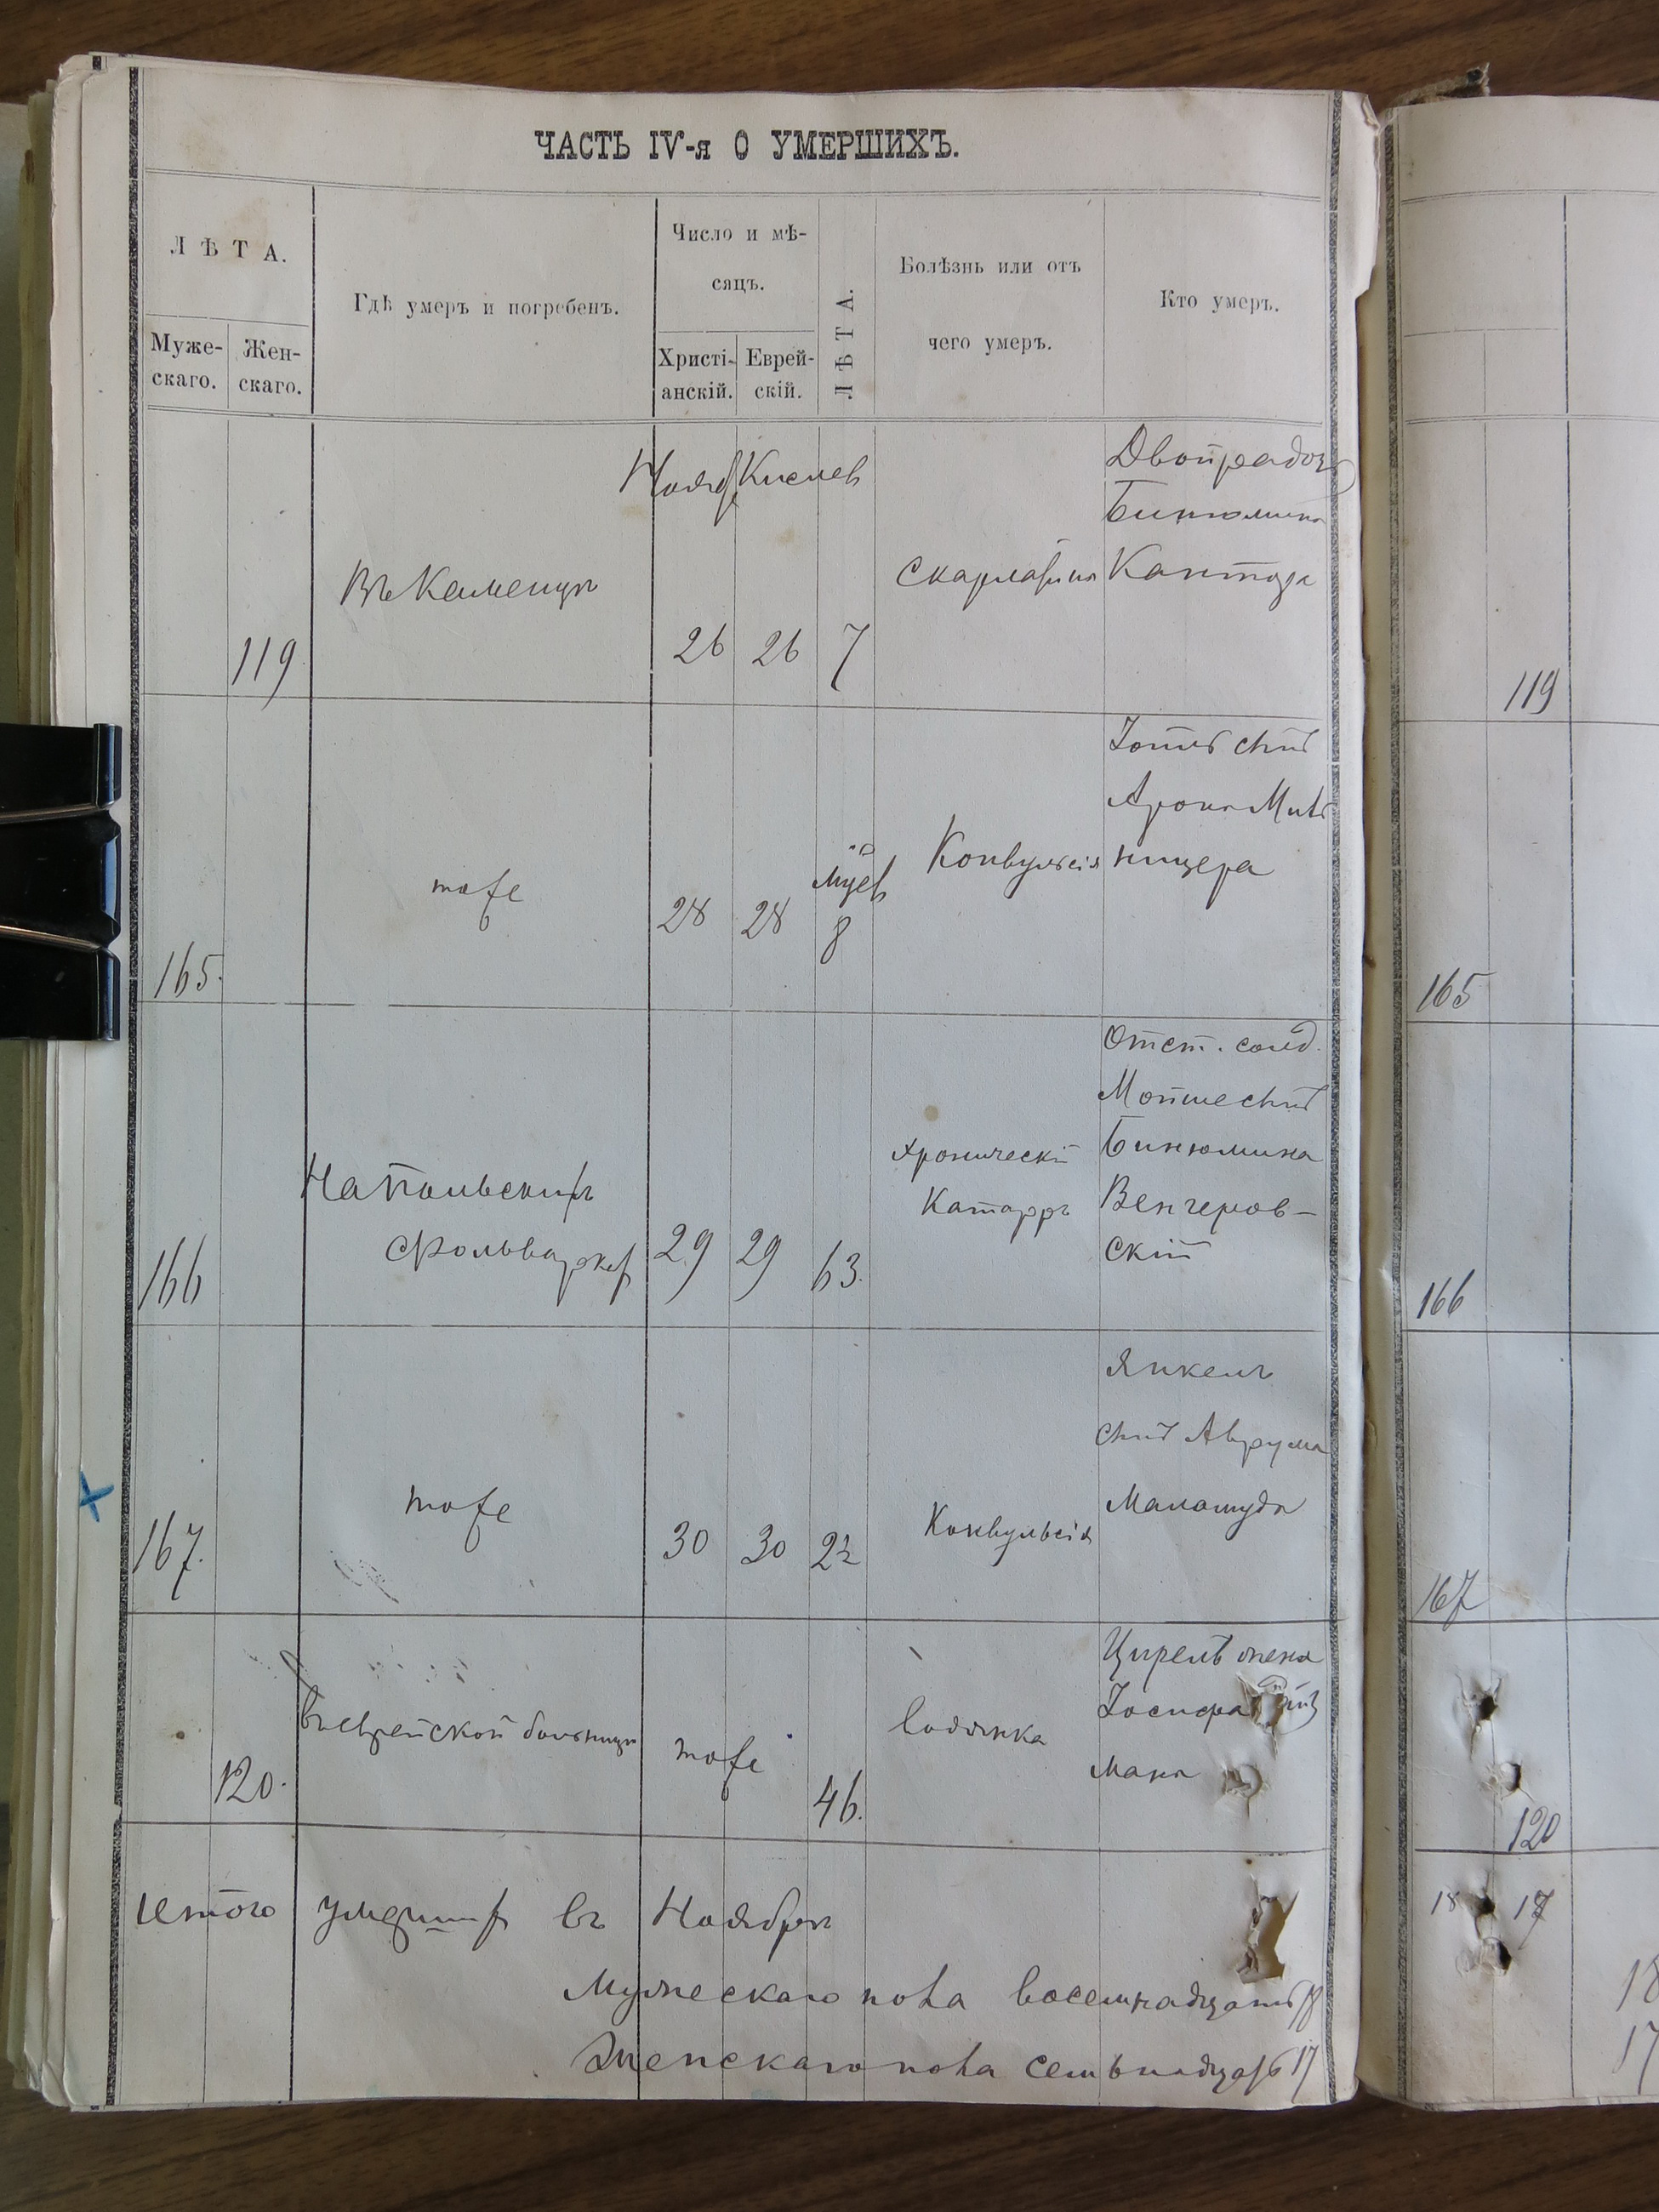 ЧАСТЬ IV-я О УМЕРШИХЪ.
ЛѢТА.
Муже-
скаго.
Жен-
скаго.
Гдѣ умеръ и погребенъ.
Число и мѣ-
сяцъ.
Христі-
анскій.
Еврей-
скій.
ЛѢТА.
Болѣзнь или отъ
чего умеръ.
Кто умеръ.
Нояб. Кислев
119
Въ Каменцѣ
26 26 7
Скарлатина
Двойра дочь
Бинюмина
Кантора
165.
тоже
28 28
мѣсяц
8
Конвульсія
сынъ
Арона
ницера
166
На Польскихъ
Фольварках
29 29 63.
Хроническій
Катарръ
Отст. солд.
Мойше сынъ
Бинюмина
Венгеров-
скій
167.
тоже
30 30 2½
Конвульсія
Янкель
сынъ Аврума
120.
въ еврейской больницѣ
тоже
46.
водянка
Цирель жена
Іосифа
мана
Итого умерших въ Ноябрѣ
Мужескаго пола восемнадцать 18
Женскаго пола семьнадцать 17
119
165
166
167
120
18 17
18
17